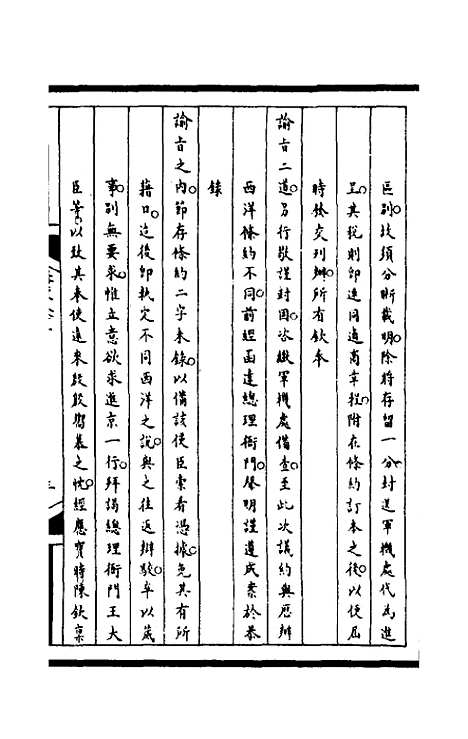 區別故須分晰載明除將存留一分封送軍機處代為進
呈其稅則即連同通商章程附在條約訂本之後以便屆
時發交列辦所有欽奉
諭旨二道另行敬謹封固咨繳軍機處備查至此次議約與歷辦
西洋條約不同前經函達總理衙門聲明謹遵成案於恭
錄
諭旨之內節存條約二字未錄以備該使臣索看憑據免其有所
藉口迄後即執定不同西洋之說與之往返辯駮卒以歲
事別無要求惟立意欲求進京一行拜謁總理衙門王大
臣等以致其奉使遠來殷殷嚮慕之忱經應寶時陳欽稟